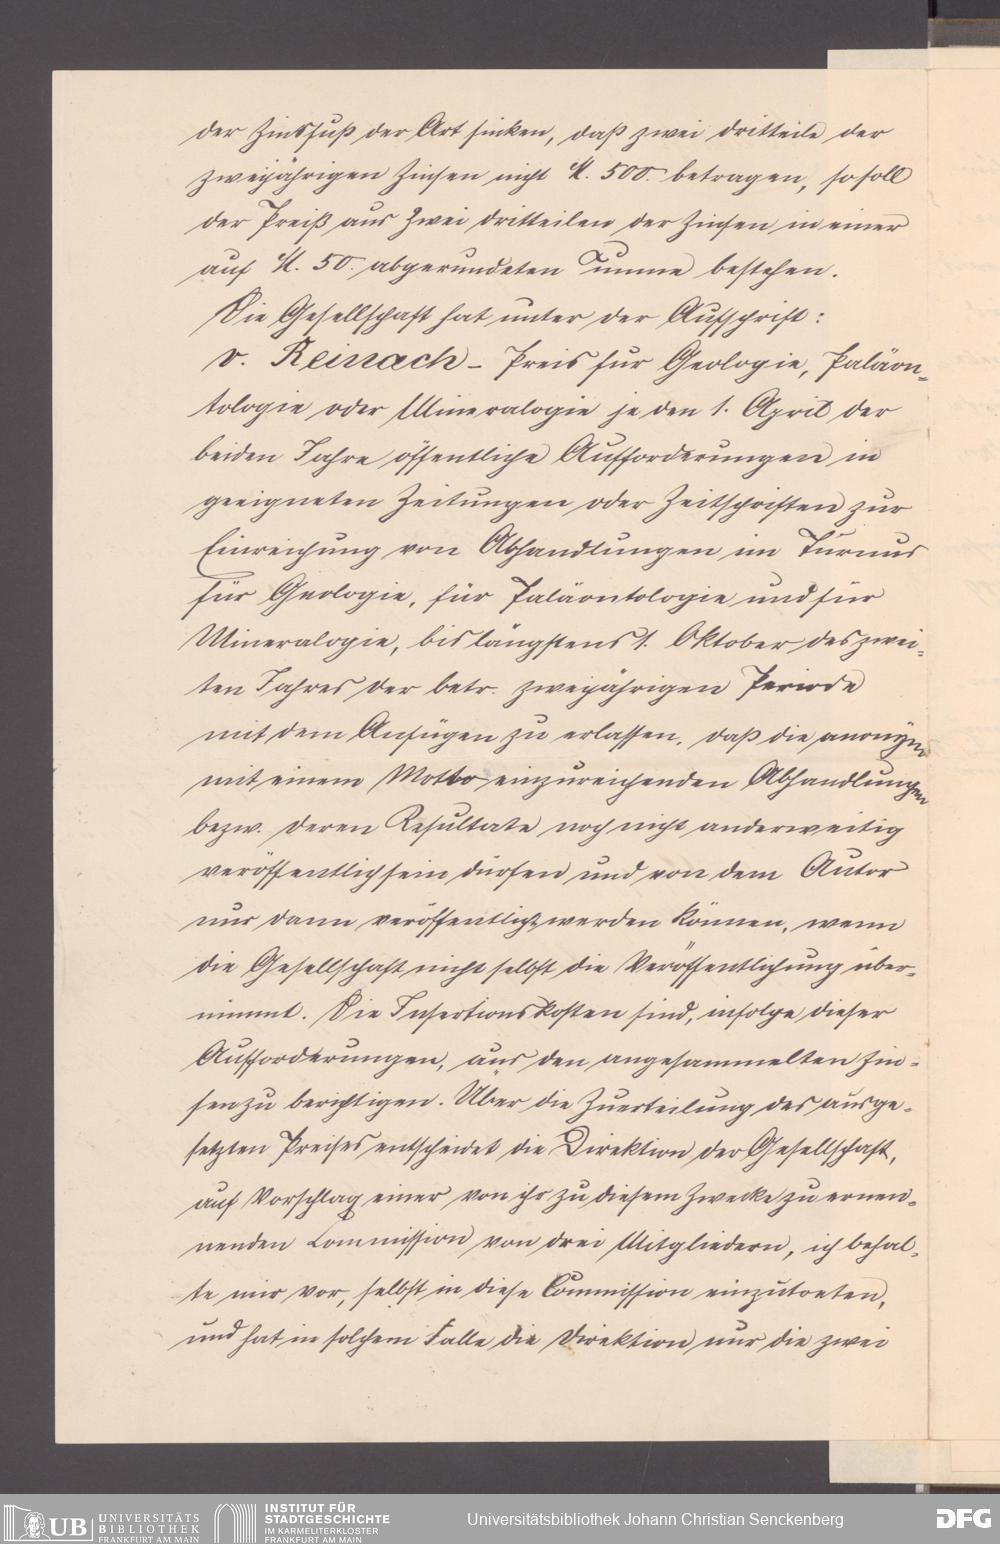 der Zinsfuß der Art sinken, daß zwei dritteile der
zweijährigen Zinsen nicht M. 500. betragen, so soll
der Preiß aus zwei dritteilen der Zinsen in einer
auf M. 50. abgerundeten Summe bestehen.
Die Gesellschaft hat unter der Aufschrift:
v. Reinach - Preis für Geologie, Paläon=
tologie oder Mineralogie je den 1. April der
beiden Jahre öffentliche Aufforderungen in
geeigneten Zeitungen oder Zeitschriften zur
Einreichung von Abhandlungen im Turnus
für Geologie, für Paläontologie und für
Mineralogie, bis längstens 1. Oktober des zwei=
ten Jahres der betr. zweijährigen Periode
mit dem Anfügen zu erlassen, daß die anonym
mit einem Motto einzureichenden Abhandlungen
bezw. deren Resultate noch nicht anderweitig
veröffentlich sein dürfen und von dem Autor
nur dann veröffentlicht werden können, wenn
die Gesellschaft nicht selbst die Veröffentlichung über=
nimmt. Die Insertionskosten sind, infolge dieser
Aufforderungen, aus den angesammelten Zin=
sen zu berichtigen. Über die Zuerteilung des ausge=
setzten Preises entscheidet die Direktion der Gesellschaft,
auf Vorschlag einer von ihr zu diesem Zwecke zu ernen=
nenden Commission von drei Mitgliedern, ich behal=
te mir vor, selbst in diese Commission einzutreten,
und hat in solchem Falle die Direktion nur die zwei
UB UNIVERSITÄTS
BIBLIOTHEK
FRANKFURT AM MAIN
INSTITUT FÜR
STADTGESCHICHTE
IM KARMELITERKLOSTER
FRANKFURT AM MAIN
Universitätsbibliothek Johann Christian Senckenberg
DFG